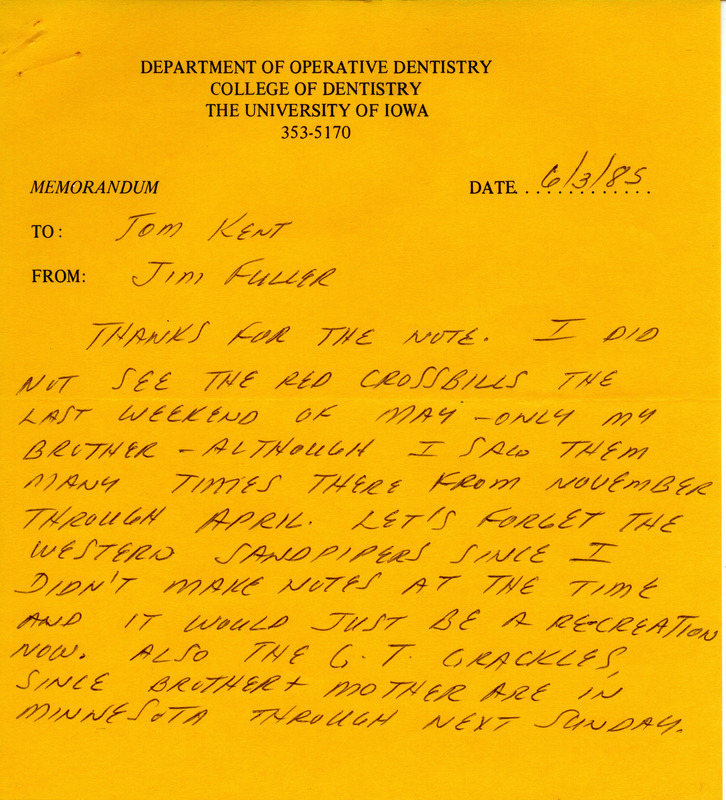 DEPARTMENT OF OPERATIVE DENTISTRY
COLLEGE OF DENTISTRY
THE UNIVERSITY OF IOWA
353-5170
MEMORANDUM DATE. . 6/3/85 . .
TO: TOM KENT
FROM: JIM FULLER
THANKS FOR THE NOTE. I DID
NOT SEE THE RED CROSSBILLS THE
LAST WEEKEND OF MAY - ONLY MY
BROTHER - ALTHOUGH I SAW THEM
MANY TIMES THERE FROM NOVEMBER
THROUGH APRIL. LET'S FORGET THE
WESTERN SANDPIPERS SINCE I
DIDN'T MAKE NOTES AT THE TIME
AND IT WOULD JUST BE A RE-CREATION
NOW. ALSO THE G. T. GRACKLES,
SINCE BROTHER + MOTHER ARE IN
MINNESOTA THROUGH NEXT SUNDAY.